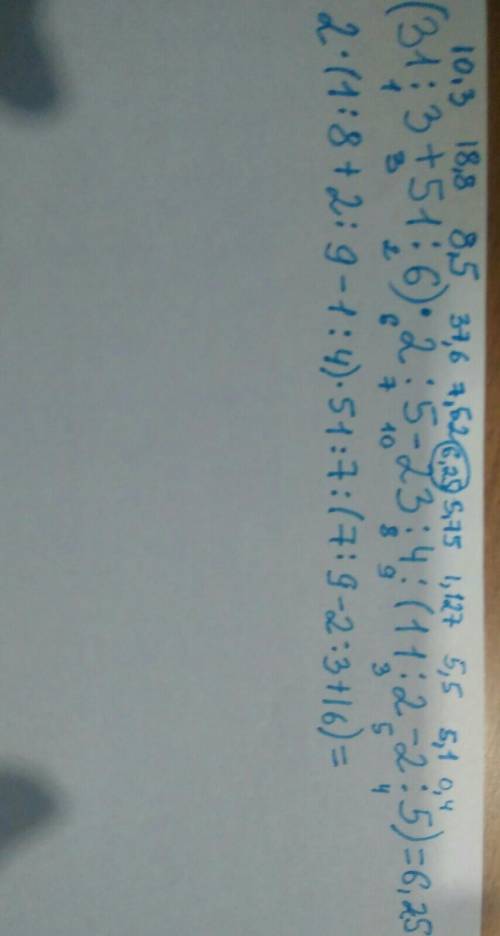 10,3 18,8 8,5 37,6 7,52 6,25 5,75 1,127 5,5 5,1 0,4
(31:3+51:6)·2:5-23:4:(11:2-2:5)=6,25
1 3 2 6 7 10 8 9 3 5 4
2·(1:8+2:9-1:4)·51:7:(7:9-2:3+16)=